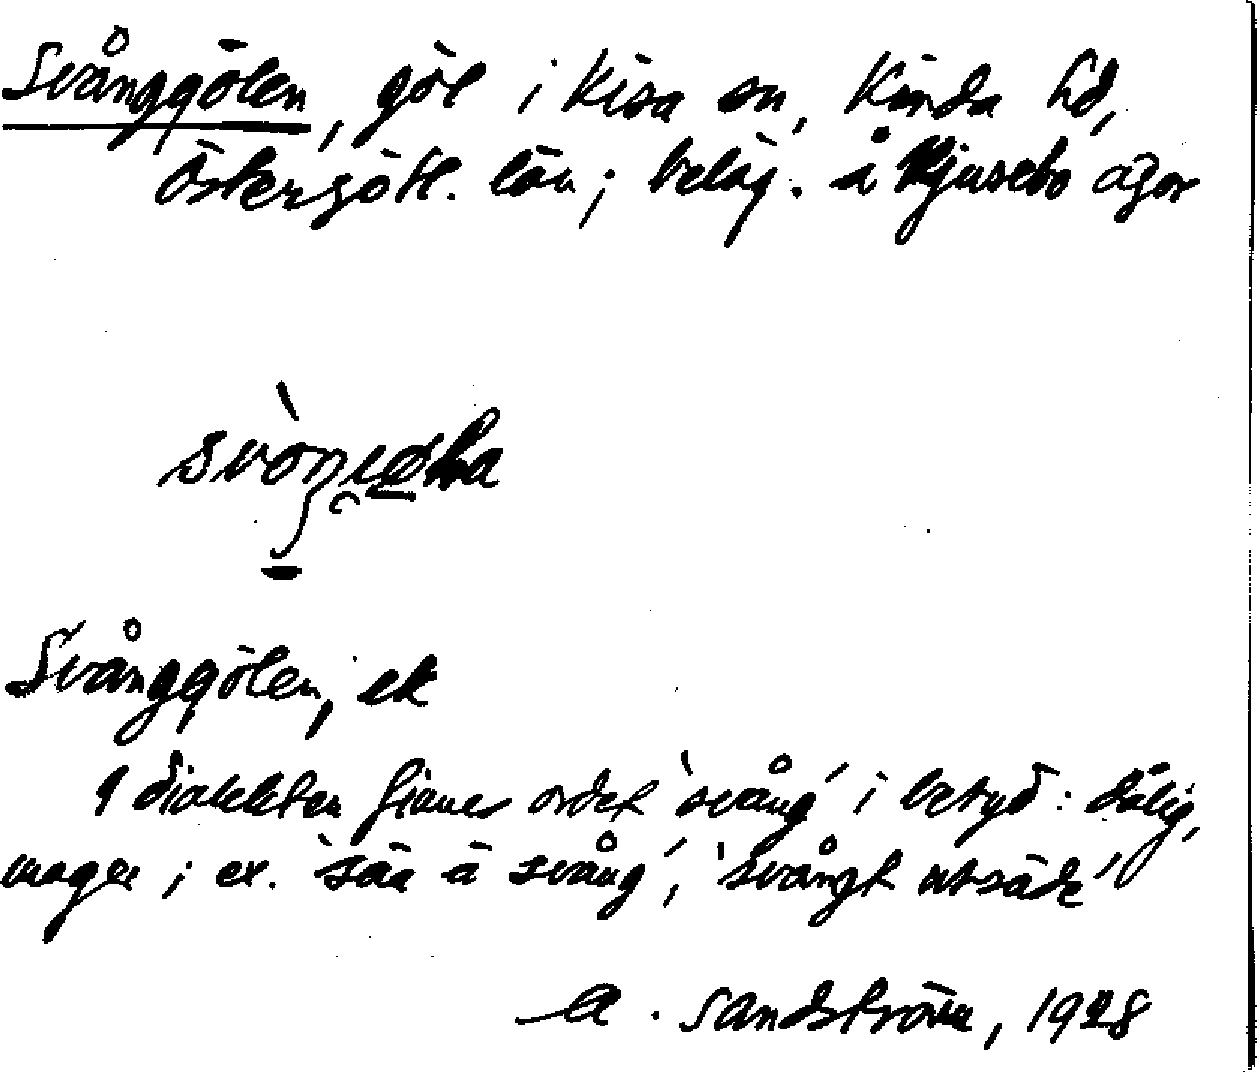 Svånggölen, göl i Kisa sn, Kinda hd,
Östergötl. län; beläg. å Kjusebo ägor
Svånggölen, ek
I dialekten finnes ordet `svång´ i betyd: dålig,
mager; ex. `sää ä svång´, `svångt utsäde´
A. Sandström, 1928